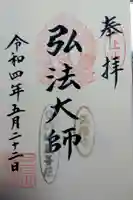 奉拝
弘法大師
令和四年五月二十二日